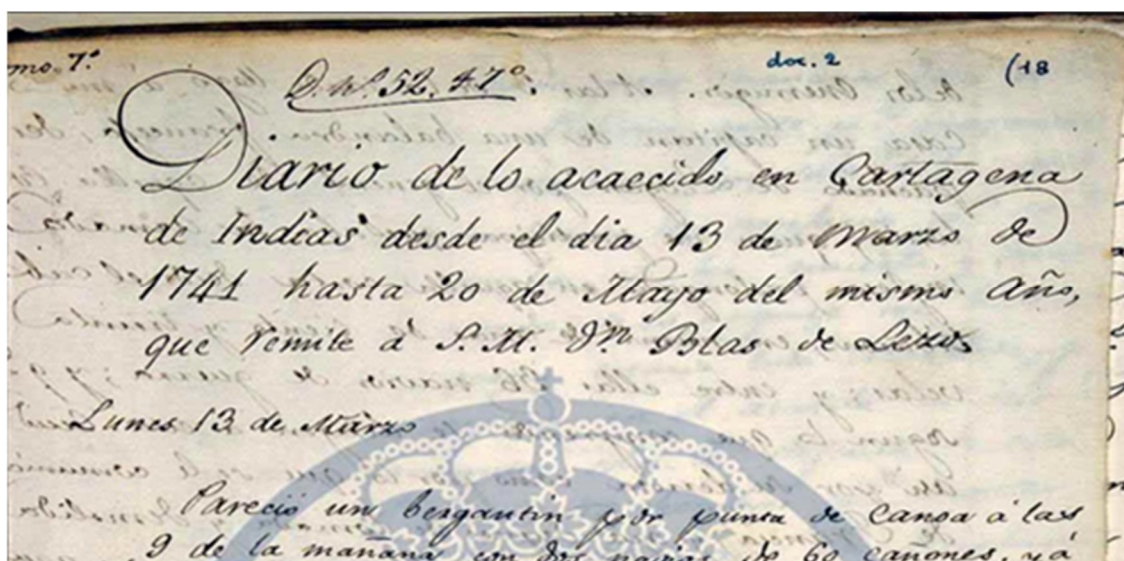 mo. 7.º
D. Nº. 52. 47º.
doc. 2
(18
Diario de lo acaecido en Cartagena
de Indias desde el dia 13 de Marzo de
1741 hasta 20 de Mayo del mismo Año,
que remite á S. M. Dn Blas de Lezo.
Lunes 13 de Marzo
Pareció un bergantin por punta de Canoa á las
9 de la mañana con dos navios de 60 cañones, y á